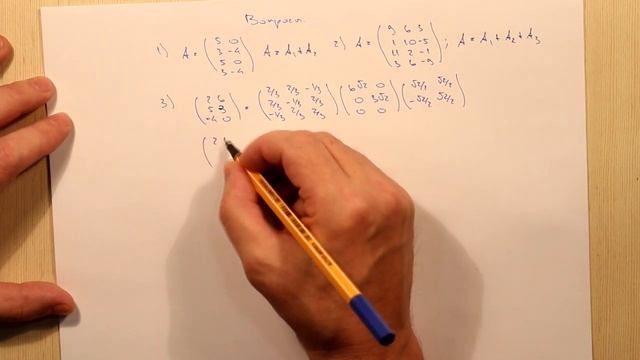 Вопросы.
1) A = (5 0; 3 -4; 5 0; 3 -4) A = A₁ + A₂ 2) A = (9 6 3; 1 10 -5; 11 2 -1; 3 6 -9); A = A₁ + A₂ + A₃
3) (2 6; 5 3; -4 0) = (2/3 2/3 -1/3; 2/3 -1/3 2/3; -1/3 2/3 2/3) (6√2 0; 0 3√2; 0 0) (√2/2 √2/2; -√2/2 √2/2)
(2